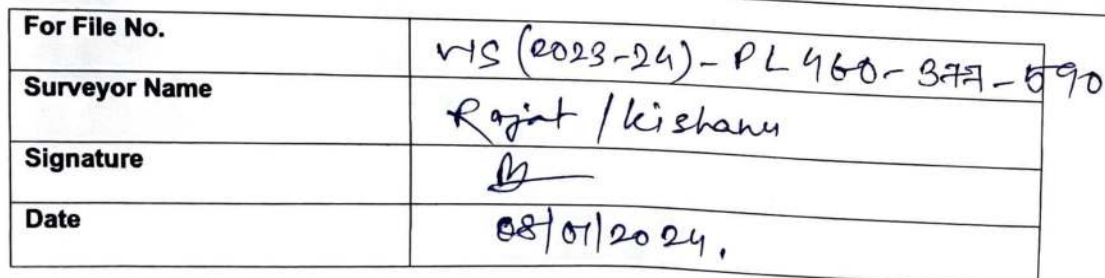 For File No. VIS (2023-24)-PL460-377-590
Surveyor Name Rajat / Kishanu
Signature
Date 08/01/2024.